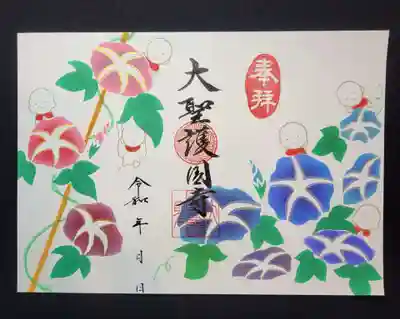 奉拝
大聖護国寺
令和 年 月 日